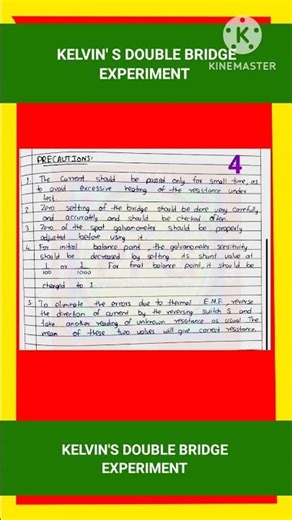 KELVIN' S DOUBLE BRIDGE
EXPERIMENT
KINEMASTER
4
PRECAUTIONS:
1. The current should be passed only for small time, as
to avoid excessive heating of the resistance under
test.
2. Zero setting of the bridge should be done very carefully
and accurately and should be checked often.
3. Zero of the spot galvanometer should be properly
adjusted before using it.
4. For initial balance point, the galvanometer sensitivity
should be decreased by setting its shunt value at
1/100 or 1/1000. For final balance point, it should be
changed to 1.
5. To eliminate the errors due to thermal E.M.F. reverse
the direction of current by the reversing switch S and
take another reading of unknown resistance as usual. The
mean of these two values will give correct resistance.
KELVIN'S DOUBLE BRIDGE
EXPERIMENT